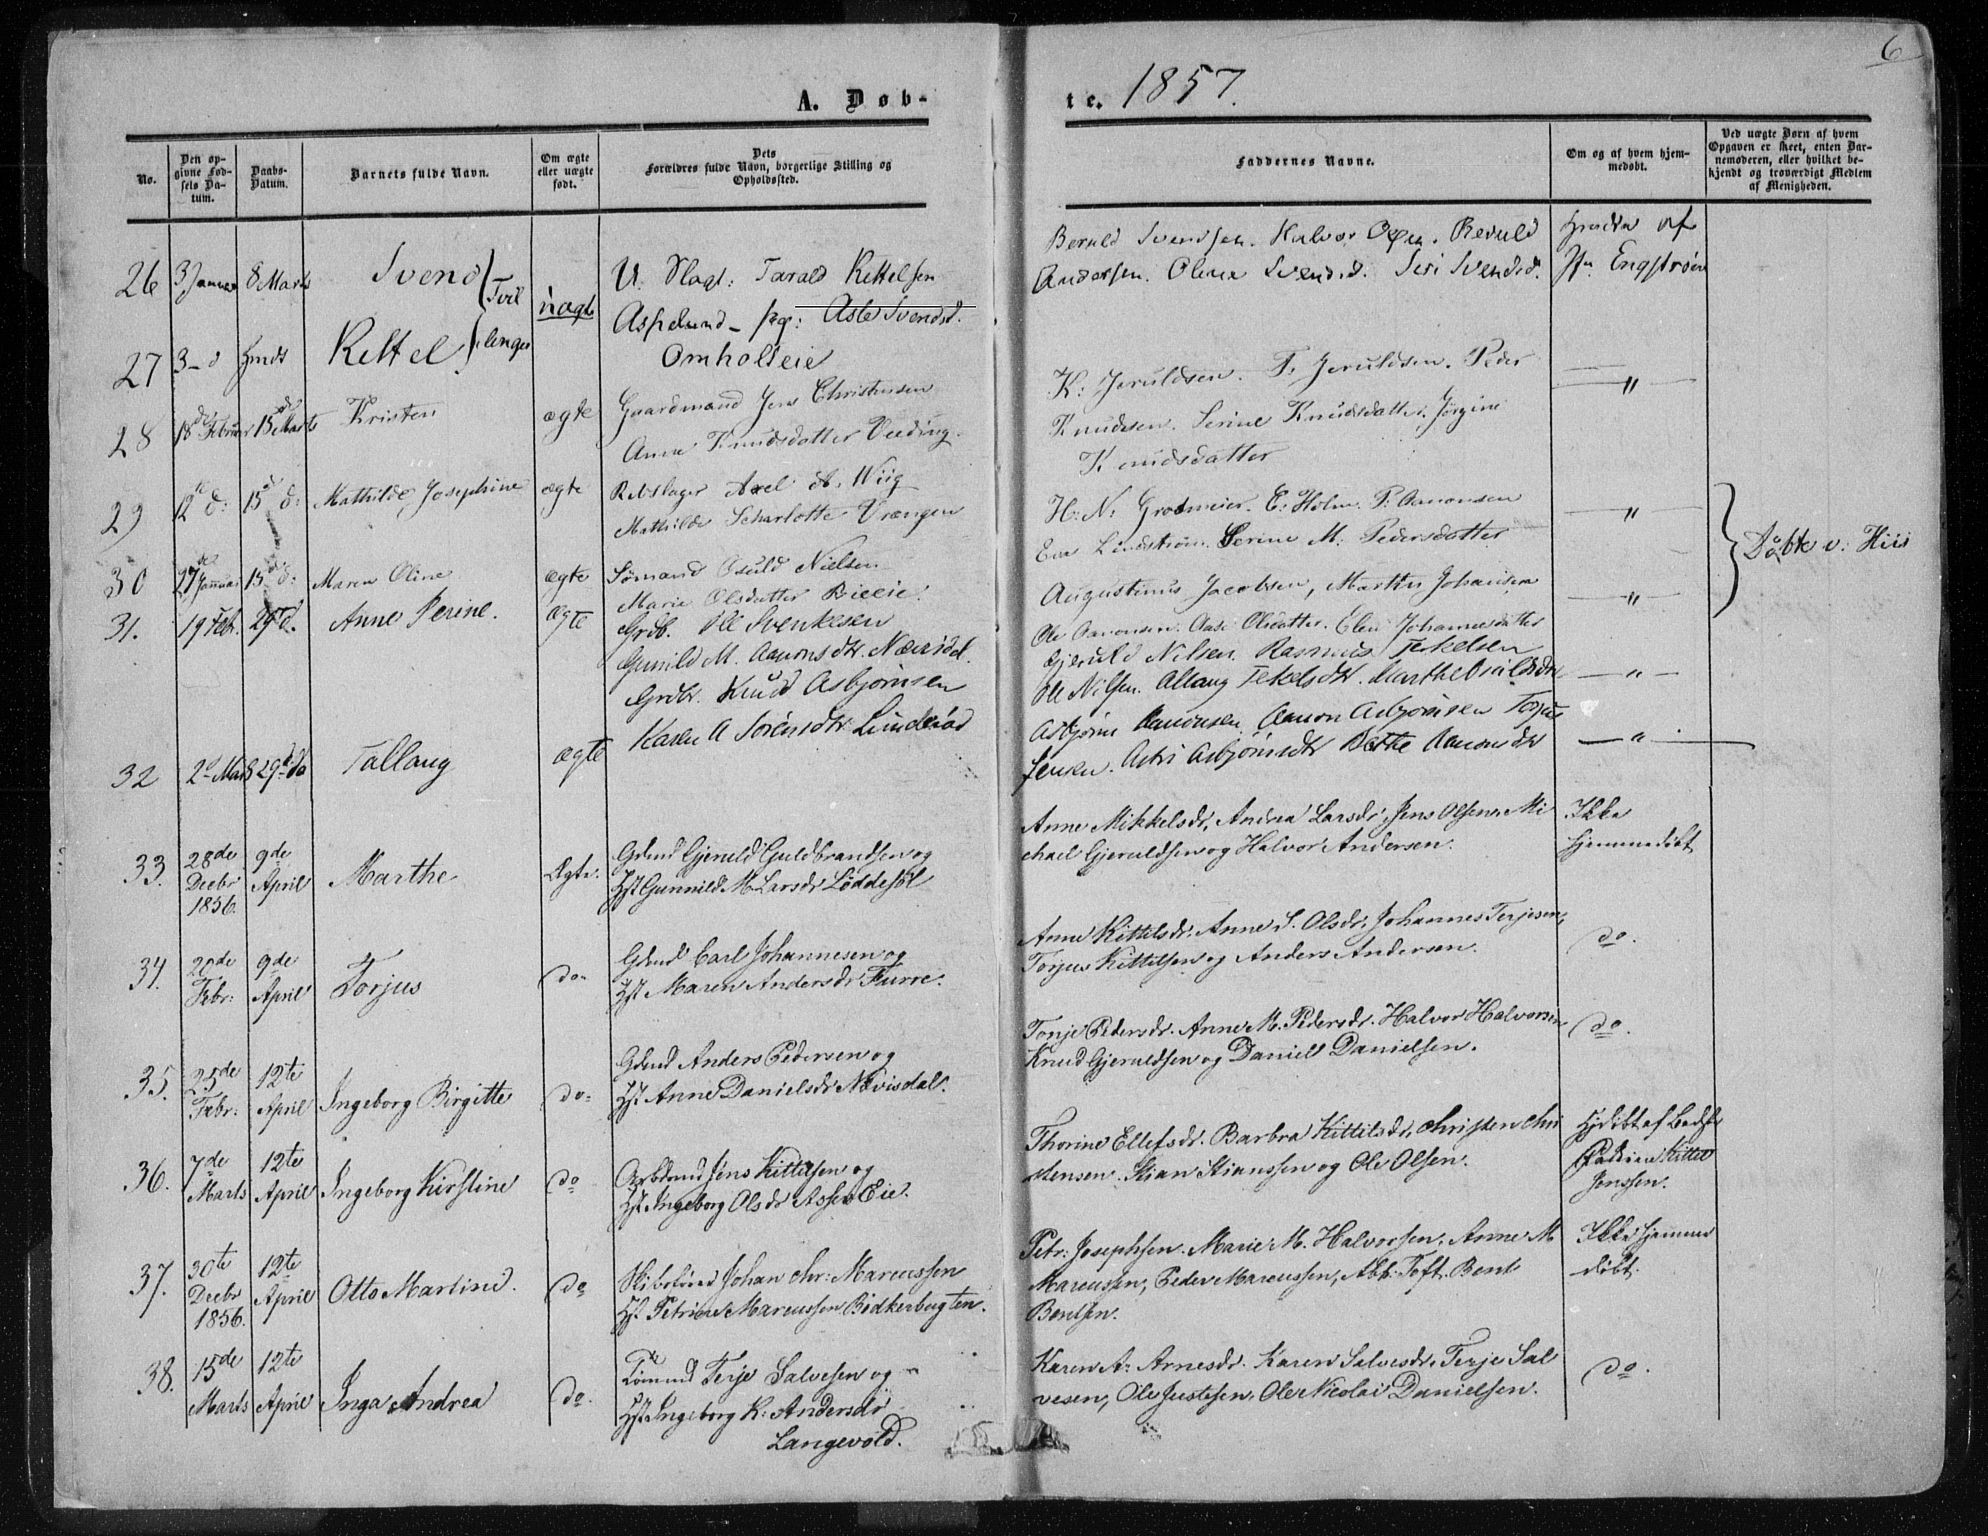 6
A. Døb-
te. 1857.
No.
Den op-
givne Fød-
sels Da-
tum.
Daabs-
Datum.
Barnets fulde Navn.
Om ægte
eller uægte
født.
Dets
Forældres fulde Navn, borgerlige Stilling og
Opholdssted.
Faddernes Navne.
Om og af hvem hjem-
medøbt.
Ved uægte Børn af hvem
Opgaven er skeet, enten Bar-
nemoderen, eller hvilket be-
kjendt og troværdigt Medlem
af Menigheden.
26 3 Januar 8 Marts Svend
uægte
U. Slagt: Tarald Kettelsen
Aspelund - Asle Svendsd.
Omholteie
Beruld Svendsen. Halvor Beruld
Andersen. Olene Svendsd. Siri Svendsd.
af
Engstrøm
27 3 d Kettel
Tvil
lenger
28 18de Februar 15de Marts Kristen ægte
Gaardmand Jens Christensen
Anne Knudsdatter Veding.
K: Jeruldsen. T. Jeruldsen. Peder
Knudsen. Serine Knudsdatter. Jørgine
Knudsdatter
"
29 12te d: 15de d: Mathilde Josephine ægte
Rebslager Axel Wiig
Mathilde Scharlotte Vrængen
H: N: Grodmeier. E: Holm. P: Aanonsen
Eva Lindstrøm. Serine M. Pedersdatter
"
Døbte v. Hiis
30 27de Januar 15de d: Maren Oline ægte
Sømand Osuld Nielsen
Marie Olsdatter Bieeie.
Augustinus Jacobsen, Marthe Johansen
Ole Aanonsen. Aase Olsdatter. Elen Johannesdatter
"
31. 19 Feb. 29d d. Anne Perine. ægte
Grdb. Ole Svenkesen
Gunild M. Aanonsdtr. Næridal.
Gjeruld Nilsen. Rasmus Tekelsen
Ole Nilsen. Allaug Tekelsdtr. Marthe
"
32 2d Marts 29d do Tallaug ægte
Grdbr. Knud Asbjørnsen
Karen A Sørensdtr. Linderød
Asbjørn Aanonsen. Aanon Asbjørnsen Torjus
Jensen. Astri Asbjørnsdtr Berthe Aanonsdtr
"
33. 28de
Decbr
1856.
9de
April
Marthe Ægte.
Gdmd Gjeruld Guldbrandsen og
Hst Gunnild M. Larsdr Løddesøl
Anne Mikkelsdr, Andrea Larsdr, Jens Olsen, Mi
chael Gjeruldsen og Halvor Andersen.
Ikke
hjemmedøbt
34. 20de
Febr:
9de
April
Torjus do.
Gdmd Carl Johannesen og
Hst Maren Andersdr Furre.
Anne Kittilsdr. Anne S. Olsdr. Johannes Terjesen,
Torjus Kittilsen og Anders Andersen.
do.
35. 25de
Febr:
12te
April
Ingeborg Birgitte do.
Gdmd Anders Pedersen og
Hst Anne Danielsdr Nævisdal.
Tonje Pedersdr. Anne M. Pedersdr. Halvor Halvorsen
Knud Gjeruldsen og Daniel Danielsen.
do.
36. 7de
Marts
12te
April
Ingeborg Kirstine do
Arbdmd Jens Kittilsen og
Hst Ingeborg Olsdr Assev Eie.
Thorine Ellefsdr. Barbra Kittilsdr, Christen Chri
stensen. Stian Stianssen og Ole Olsen.
Hjdøbt af Bedste
Faderen Kittel
Jenssen.
37. 30te
Decbr
1856.
12te
April
Otto Martin. do
Skibsfører Johan Chr: Marcussen
Hst Petrine Marcussen Bidkerbugten.
Petr: Josephsen. Marie M. Halvorsen. Anne M.
Marcussen, Peder Marcussen, Abr: Toft. Bent
Bentsen.
Ikke hjemme
døbt.
38. 15de
Marts
12te
April
Inga Andrea do.
Tømmd Terje Salvesen og
Hst Ingeborg K: Andersdr
Langevold.
Karen A: Arnesdr. Karen Salvesdr. Terje Sal
vesen, Ole Justesen. Ole Nicolai Danielsen.
do.